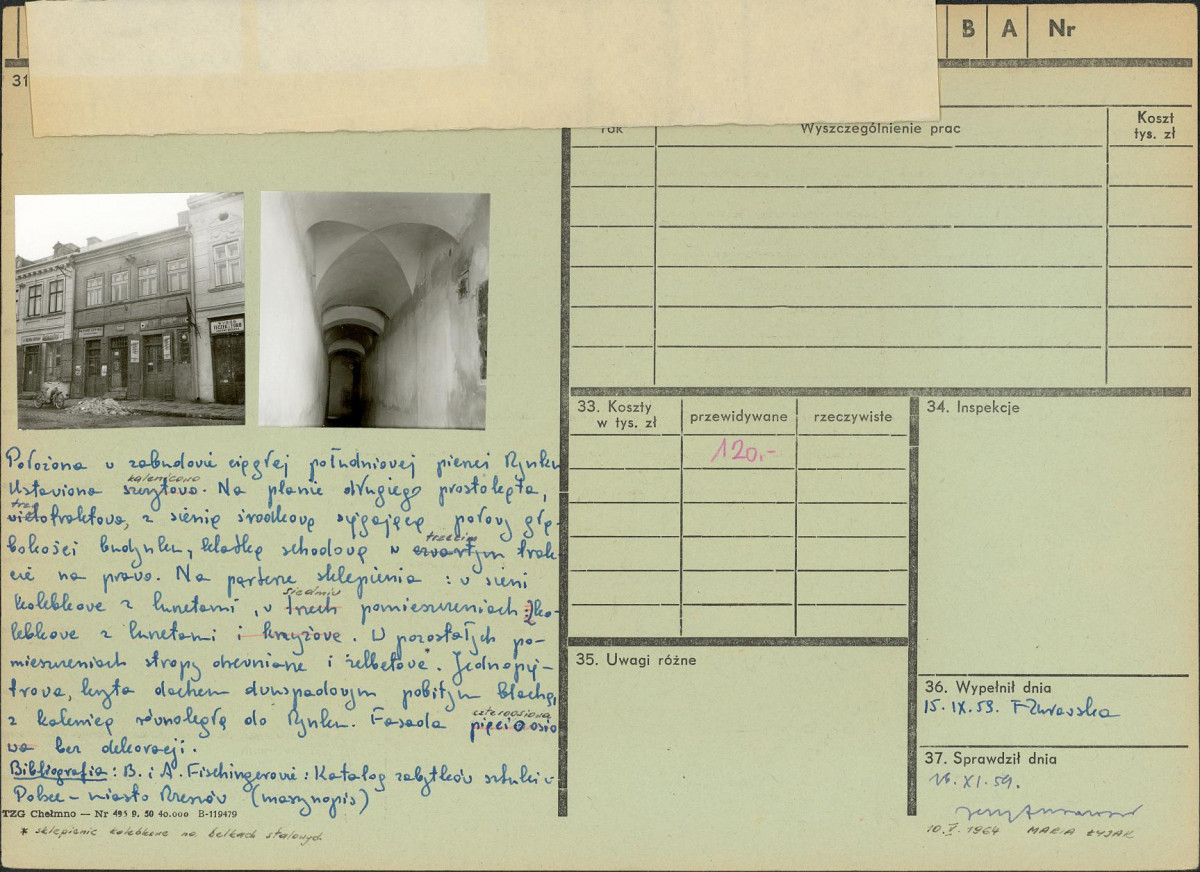 B A Nr
31
rok Wyszczególnienie prac Koszt
tys. zł
33. Koszty
w tys. zł
przewidywane
rzeczywiste
120.-
34. Inspekcje
35. Uwagi różne
36. Wypełnił dnia
15.IX.59.
37. Sprawdził dnia
16.XI.59.
10.V.1964 MARIA ŁYJAK
Położona w zabudowie ciągłej południowej pierzei Rynku
kalenicowo
Ustawiona szczytowo. Na planie drugiego prostokąta,
trzy
wielotraktowa, z sienią środkową sięgającą połowy głę-
trzecim
bokości budynku, klatką schodową w czwartym trak-
cie na prawo. Na parterze sklepienia : w sieni
siedmiu
kolebkowe z lunetami, w trzech pomieszczeniach : ko-
lebkowe z lunetami i krzyżowe. W pozostałych po-
mieszczeniach stropy drewniane i żelbetowe*. Jednopię-
trowa, kryta dachem dwuspadowym pobitym blachą,
czteroosiowa
z kalenicą równoległą do Rynku. Fasada pięcioosio
wa bez dekoracji.
Bibliografia : B. i A. Fischingerowie : Katalog zabytków sztuki w
Polsce - miasto Rzeszów (maszynopis)
TZG Chełmno — Nr 495 9. 50 40.000 B-119479
* sklepienie kolebkowe na belkach stalowych